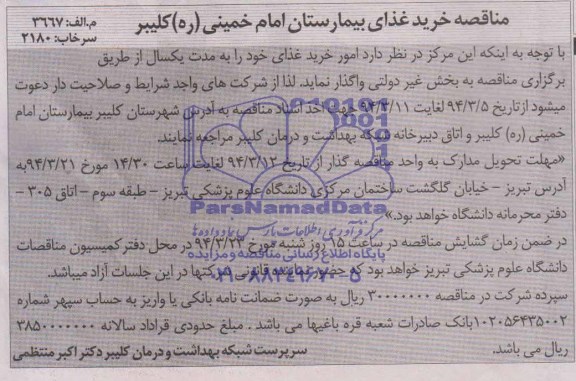 مناقصه خرید غذای بیمارستان امام خمینی (ره) کلیبر
م.الف: ۳۶۶۷
سرخاب: ۲۱۸۰
با توجه به اینکه این مرکز در نظر دارد امور خرید غذای خود را به مدت یکسال از طریق
برگزاری مناقصه به بخش غیر دولتی واگذار نماید. لذا از شرکت های واجد شرایط و صلاحیت دار دعوت
میشود از تاریخ ۹۴/۳/۵ لغایت ۹۴/۳/۱۱ جهت اخذ اسناد مناقصه به آدرس شهرستان کلیبر بیمارستان امام
خمینی (ره) کلیبر و اتاق دبیرخانه شبکه بهداشت و درمان کلیبر مراجعه نمایند.
«مهلت تحویل مدارک به واحد مناقصه گذار از تاریخ ۹۴/۳/۱۲ لغایت ساعت ۱۴/۳۰ مورخ ۹۴/۳/۲۱ به
آدرس تبریز - خیابان گلگشت ساختمان مرکزی دانشگاه علوم پزشکی تبریز - طبقه سوم - اتاق ۳۰۵ -
دفتر محرمانه دانشگاه خواهد بود.»
ParsNamadData
در ضمن زمان گشایش مناقصه در ساعت ۱۵ روز شنبه مورخ ۹۴/۳/۲۳ در محل دفتر کمیسیون مناقصات
پایگاه اطلاع رسانی مناقصه و مزایده
دانشگاه علوم پزشکی تبریز خواهد بود که حضور نماینده قانونی شرکتها در این جلسات آزاد میباشد.
۰۲۱-۸۸۳۴۹۶۷۰-۵
سپرده شرکت در مناقصه ۳۰۰۰۰۰۰۰ ریال به صورت ضمانت نامه بانکی یا واریز به حساب سپهر شماره
۰۱۰۲۰۵۶۴۳۵۰۰۲ بانک صادرات شعبه قره باغیها می باشد. مبلغ حدودی قراداد سالانه ۳۸۵۰۰۰۰۰۰۰
ریال می باشد.
سرپرست شبکه بهداشت و درمان کلیبر دکتر اکبر منتظمی